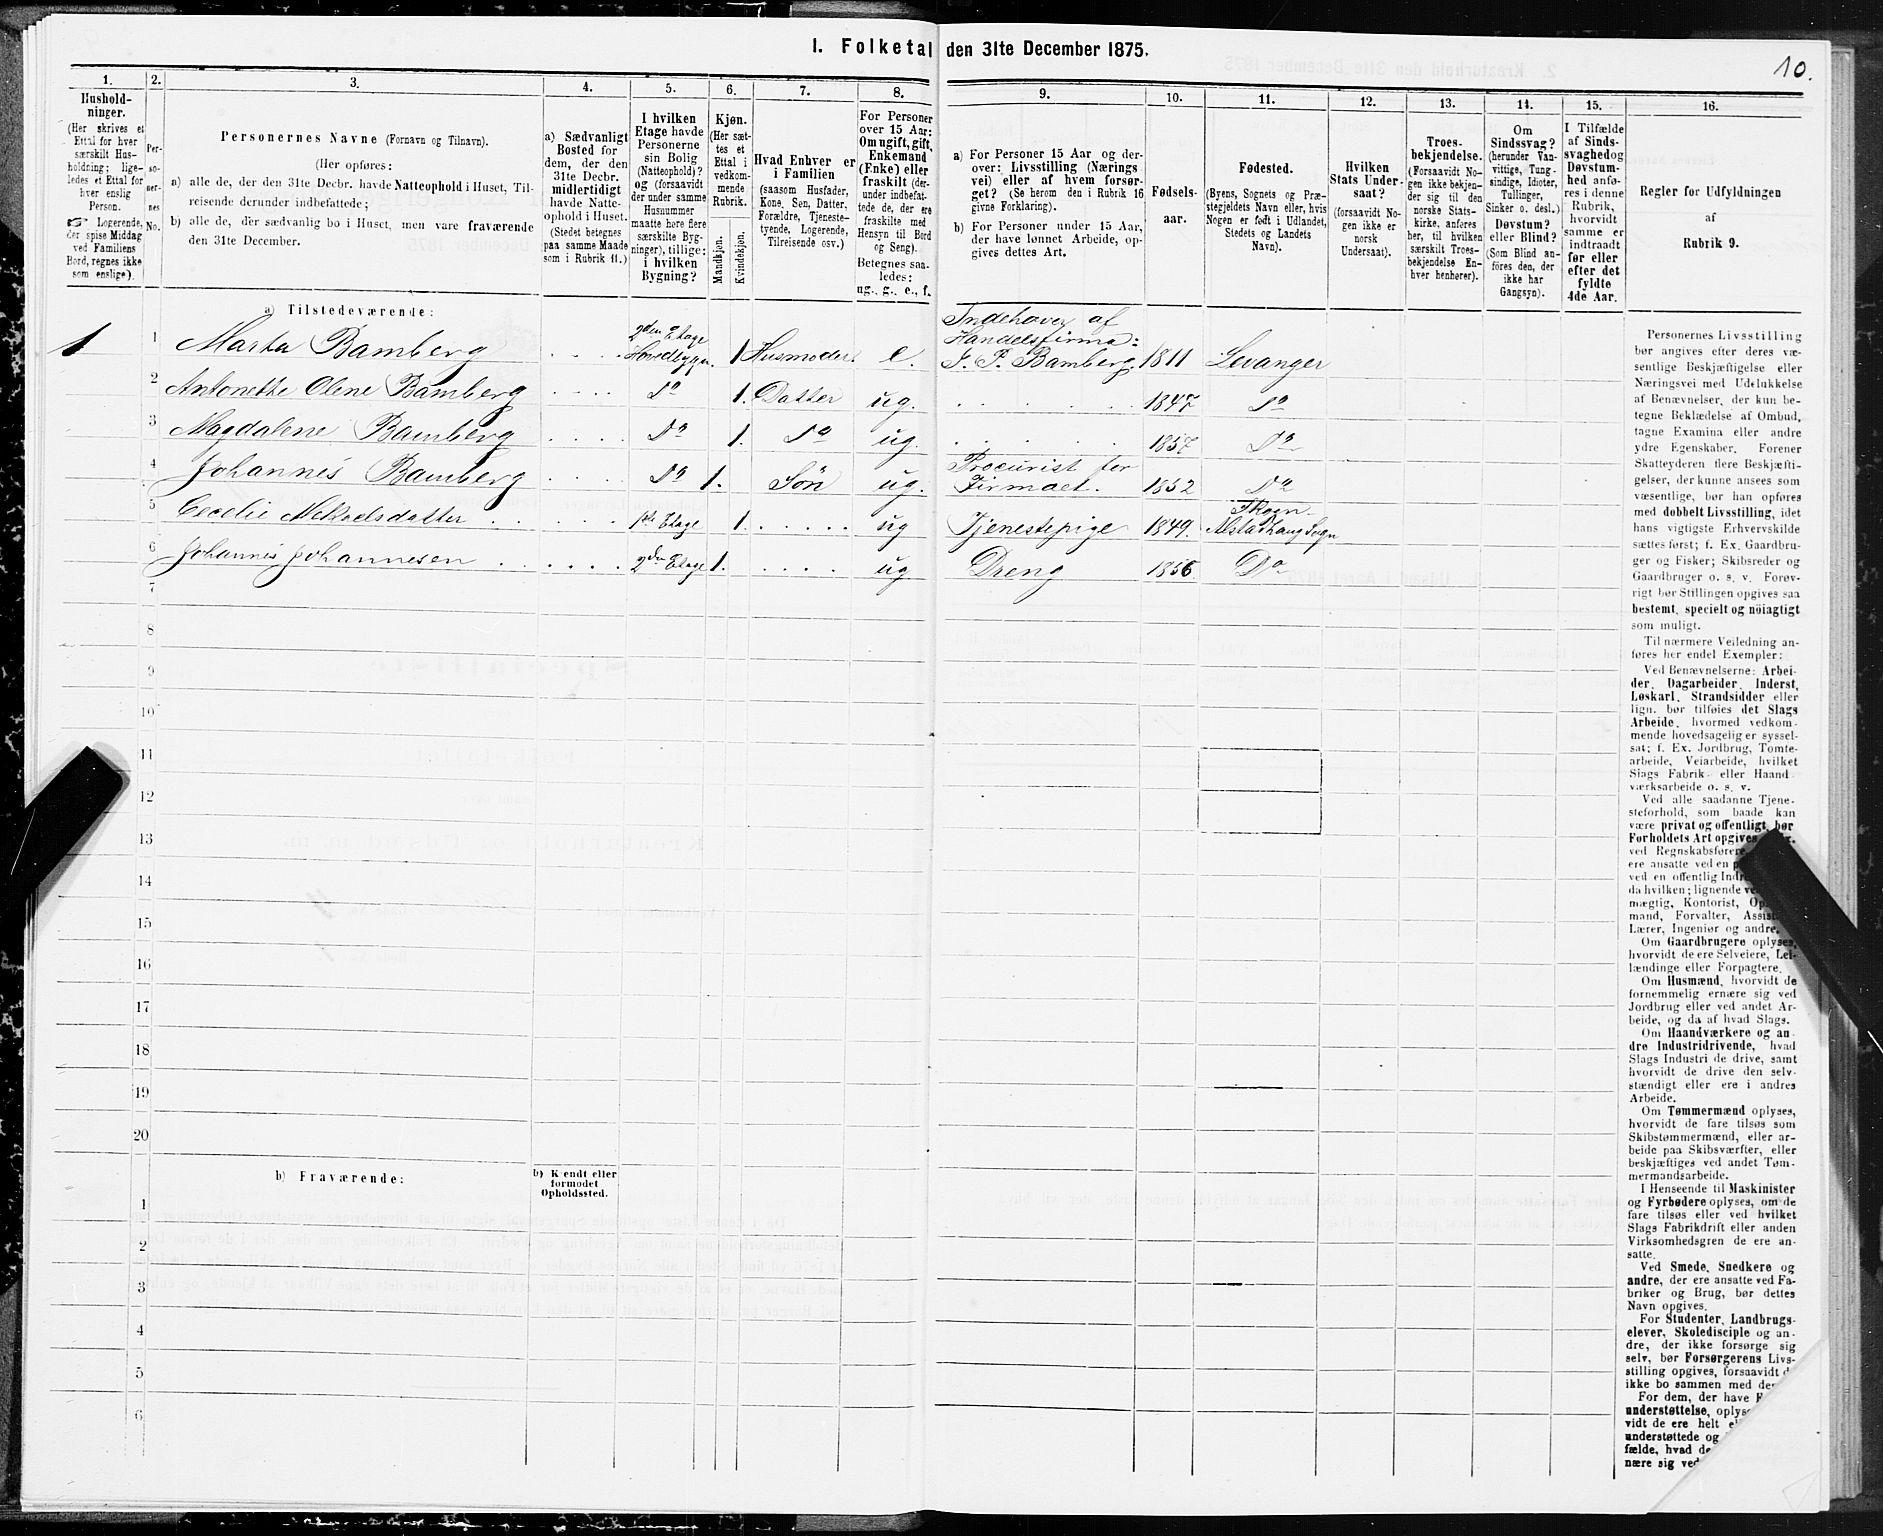 1. Folketal den 31te December 1875.
10.
1.
Hushold-
ninger.
(Her skrives et
Ettal for hver
særskilt Hus-
holdning; lige-
ledes et Ettal for
hver enslig
Person.
☞ Logerende,
der spise Middag
ved Familiens
Bord, regnes ikke
som enslige).
2.
Per-
so-
ner-
nes
No.
3.
Personernes Navne (Fornavn og Tilnavn).
(Her opføres:
a) alle de, der den 31te Decbr. havde Natteophold i Huset, Til-
reisende derunder indbefattede;
b) alle de, der sædvanlig bo i Huset, men vare fraværende
den 31te December.
4.
a) Sædvanligt
Bosted for
dem, der den
31te Decbr.
midlertidigt
havde Natte-
ophold i Huset.
(Stedet betegnes
paa samme Maade
som i Rubrik 11.)
5.
I hvilken
Etage havde
Personerne
sin Bolig
(Natteophold)?
og (forsaavidt
der under samme
Husnummer
maatte høre flere
særskilte Byg-
ninger), tillige:
i hvilken
Bygning?
6.
Kjøn.
(Her sæt-
tes et
Ettal i
vedkom-
mende
Rubrik.
Mandkjøn.
Kvindekjøn.
7.
Hvad Enhver er
i Familien
(saasom Husfader,
Kone, Søn, Datter,
Forældre, Tjeneste-
tyende, Logerende,
Tilreisende osv.)
8.
For Personer
over 15 Aar:
Om ugift, gift,
Enkemand
(Enke) eller
fraskilt (der-
under indbefat-
tede de, der ere
fraskilte med
Hensyn til Bord
og Seng).
Betegnes saa-
ledes:
ug., g., e., f.
9.
a) For Personer 15 Aar og der-
over: Livsstilling (Nærings
vei) eller af hvem forsør-
get? (Se herom den i Rubrik 16
givne Forklaring).
b) For Personer under 15 Aar,
der have lønnet Arbeide, op-
gives dettes Art.
10.
Fødsels-
aar.
11.
Fødested.
(Byens, Sognets og Præ-
stegjeldets Navn eller, hvis
Nogen er født i Udlandet,
Stedets og Landets
Navn).
12.
Hvilken
Stats Under-
saat?
(forsaavidt No-
gen ikke er
norsk
Undersaat).
13.
Troes-
bekjendelse.
(Forsaavidt No-
gen ikke bekjen-
der sig til den
norske Stats-
kirke, anføres
her, til hvilken
særskilt Troes-
bekjendelse En-
hver henhører).
14.
Om
Sindssvag?
(herunder Van-
vittige, Tung-
sindige, Idioter,
Tullinger,
Sinker o. desl.)
Døvstum?
eller Blind?
(Som Blind an-
føres den, der
ikke har
Gangsyn).
15.
I Tilfælde
af Sinds-
svaghedog
Døvstum-
hed anfø-
res i denne
Rubrik,
hvorvidt
samme er
indtraadt
før eller
efter det
fyldte
4de Aar.
16.
Regler for Udfyldningen
af
Rubrik 9.
a) Tilstedeværende:
1 1 Marta Bamberg 2den Etage Hovedbygn. 1 Husmoder e. Indehaver af Handelsfirma: J. P. Bamberg. 1811 Levanger
2 Antonette Olene Bamberg Do 1. Datter ug. 1847 Do
3 Magdalene Bamberg Do 1. Do ug. 1857 Do
4 Johannes Bamberg Do 1. Søn ug. Procurist for Firmaet. 1852 Do
5 Cecelie Mekaelsdatter 1ste Etage 1. ug Tjenestepige 1849. Skogn Alstadhaug Sogn
6 Johannes Johannesen 2den Etage 1. ug Dreng 1856 Do
7
8
9
10
11
12
13
14
15
16
17
18
19
20
b) Fraværende:
b) Kjendt eller
formodet
Opholdssted.
1
2
3
4
5
6
Personernes Livsstilling
bør angives efter deres væ-
sentlige Beskjæftigelse eller
Næringsvei med Udelukkelse
af Benævnelser, der kun be-
tegne Beklædelse af Ombud,
tagne Examina eller andre
ydre Egenskaber. Forener
Skatteyderen flere Beskjæfti-
gelser, der kunne ansees som
væsentlige, bør han opføres
med dobbelt Livsstilling, idet
hans vigtigste Erhvervskilde
sættes først; f. Ex. Gaardbru-
ger og Fisker; Skibsreder og
Gaardbruger o. s. v. Forøv-
rigt bør Stillingen opgives saa
bestemt, specielt og nöiagtigt
som muligt.
Til nærmere Veiledning an-
føres her endel Exempler:
Ved Benævnelserne: Arbei-
der, Dagarbeider, Inderst,
Løskarl, Strandsidder eller
lign. bør tilføies det Slags
Arbeide, hvormed vedkom-
mende hovedsagelig er syssel-
sat; f. Ex. Jordbrug, Tomte-
arbeide, Veiarbeide, hvilket
Slags Fabrik- eller Haand-
værksarbeide o. s. v.
Ved alle saadanne Tjene-
steforhold, som baade kan
være privat og offentligt, bør
Forholdets Art opgives
ved Regnskabsførere,
ere ansatte ved en
ved en offentlig
da hvilken; lignende
mægtig, Kontorist,
mand, Forvalter,
Lærer, Ingeniør og andre.
Om Gaardbrugere oplyses,
hvorvidt de ere Selveiere, Lei-
lændinge eller Forpagtere.
Om Husmænd, hvorvidt de
fornemmelig ernære sig ved
Jordbrug eller ved andet Ar-
beide, og da af hvad Slags.
Om Haandværkere og an-
dre Industridrivende, hvad
Slags Industri de drive, samt
hvorvidt de drive den selv-
stændigt eller ere i andres
Arbeide.
Om Tømmermænd oplyses,
hvorvidt de fare tilsøs som
Skibstømmermænd, eller ar-
beide paa Skibsværfter, eller
beskjæftiges ved andet Tøm-
mermandsarbeide.
I Henseende til Maskinister
og Fyrbødere oplyses, om de
fare tilsøs eller ved hvilket
Slags Fabrikdrift eller anden
Virksomhedsgren de ere an-
satte.
Ved Smede, Snedkere og
andre, der ere ansatte ved Fa-
briker og Brug, bør dettes
Navn opgives.
For Studenter, Landbrugs-
elever, Skoledisciple og an-
dre, der ikke forsørge sig
selv, bør Forsørgerens Livs-
stilling opgives, forsaavidt
ikke bo sammen med
For dem, der have
understøttelse,
vidt de ere helt
understøttede og
fælde, hvad
nære sig ved